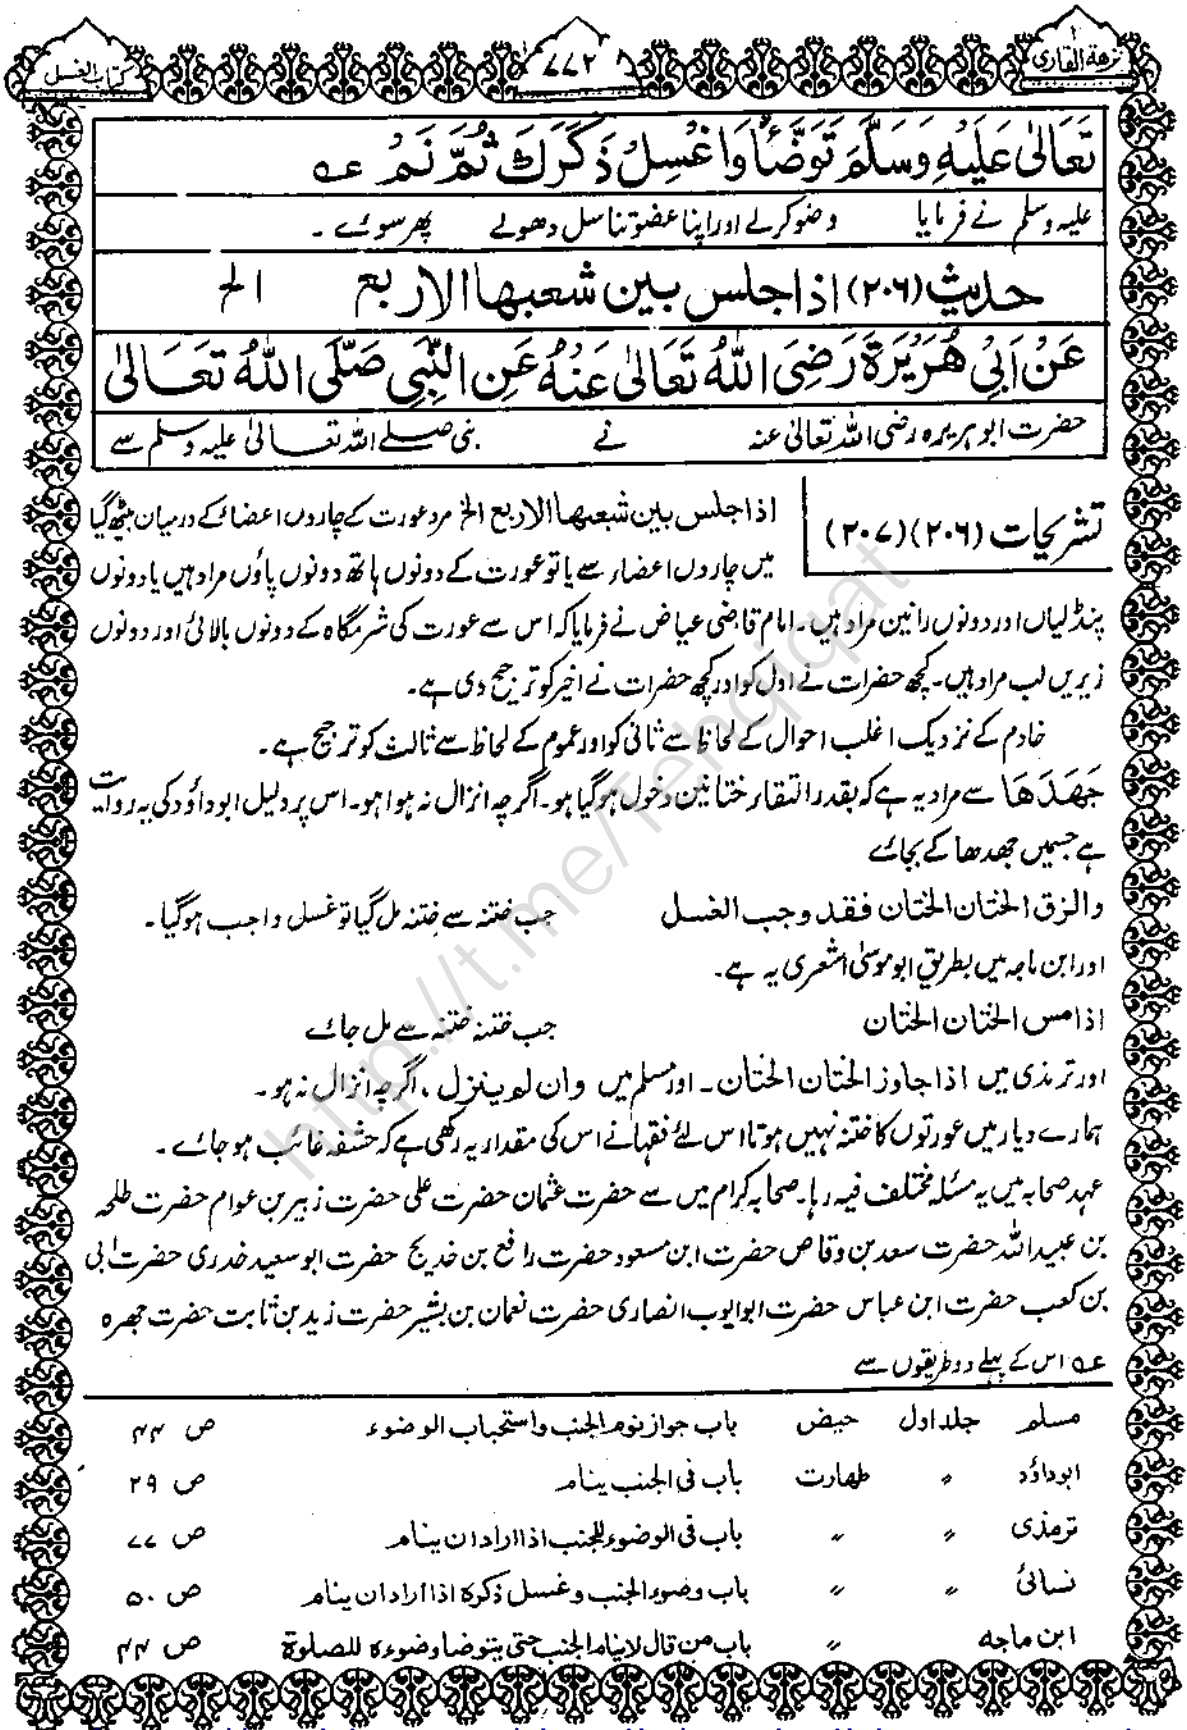 نزهة القاری
۷۷۲
کتاب الغسل
تَعَالٰی عَلَیْهِ وَسَلَّمَ تَوَضَّأْ وَاغْسِلْ ذَکَرَكَ ثُمَّ نَمْ عـه
علیہ وسلم نے فرمایا وضو کرلے اور اپنا عضو تناسل دھولے پھر سوئے ۔
حدیث (۲۰۶) اذا جلس بین شعبها الاربع الخ
عَنْ اَبِیْ هُرَیْرَةَ رَضِیَ اللّٰهُ تَعَالٰی عَنْهُ عَنِ النَّبِیِ صَلَّی اللّٰهُ تَعَالٰی
حضرت ابوہریرہ رضی اللہ تعالیٰ عنہ نے نبی صلے اللہ تعالیٰ علیہ وسلم سے
تشریحات (۲۰۶) (۲۰۷)
اذا جلس بین شعبها الاربع الخ مرد عورت کے چاروں اعضاء کے درمیان بیٹھ گیا
میں چاروں اعضاء سے یا تو عورت کے دونوں ہاتھ دونوں پاؤں مراد ہیں یا دونوں
پنڈلیاں اور دونوں رانیں مراد ہیں۔ امام قاضی عیاض نے فرمایا کہ اس سے عورت کی شرمگاہ کے دونوں بالائی اور دونوں
زیریں لب مراد ہیں۔ کچھ حضرات نے اول کو اور کچھ حضرات نے اخیر کو ترجیح دی ہے۔
خادم کے نزدیک اغلب احوال کے لحاظ سے ثانی کو اور عموم کے لحاظ سے ثالث کو ترجیح ہے ۔
جَهَدَهَا سے مراد یہ ہے کہ بقدر التقاء ختانین دخول ہوگیا ہو۔ اگرچہ انزال نہ ہوا ہو۔ اس پر دلیل ابوداؤد کی یہ روایت
ہے جسمیں جهدها کے بجائے
والزق الختان الختان فقد وجب الغسل جب ختنہ سے ختنہ مل گیا تو غسل واجب ہوگیا ۔
اور ابن ماجہ میں بطریق ابوموسیٰ اشعری یہ ہے۔
اذا مس الختان الختان جب ختنہ ختنہ سے مل جائے
اور ترمذی میں اذا جاوز الختان الختان ۔ اور مسلم میں وان لم ینزل ، اگرچہ انزال نہ ہو ۔
ہمارے دیار میں عورتوں کا ختنہ نہیں ہوتا اس لئے فقہا نے اس کی مقدار یہ رکھی ہے کہ حشفہ غائب ہو جائے ۔
عہد صحابہ میں یہ مسئلہ مختلف فیہ رہا۔ صحابہ کرام میں سے حضرت عثمان حضرت علی حضرت زبیر بن عوام حضرت طلحہ
بن عبیداللہ حضرت سعد بن وقاص حضرت ابن مسعود حضرت رافع بن خدیج حضرت ابوسعید خدری حضرت ابی
بن کعب حضرت ابن عباس حضرت ابوایوب انصاری حضرت نعمان بن بشیر حضرت زید بن ثابت حضرت جمہرہ
عـه اس کے پہلے دو طریقوں سے
مسلم جلد اول حیض باب جواز نوم الجنب واستحباب الوضوء ص ۱۴۴
ابوداؤد 〃 طهارت باب فی الجنب ینام ص ۲۹
ترمذی 〃 〃 باب فی الوضوء للجنب اذا اراد ان ینام ص ۷۷
نسائی 〃 〃 باب وضوء الجنب وغسل ذکره اذا اراد ان ینام ص ۵۰
ابن ماجه 〃 باب من قال لا ینام الجنب حتی یتوضا وضوءه للصلوة ص ۴۴
http://t.me/Tehqiqat